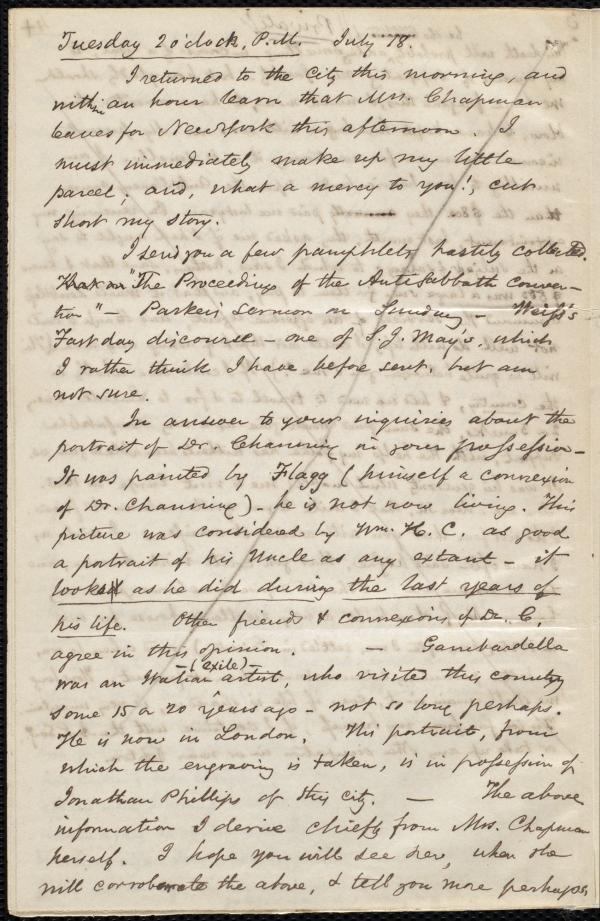 Tuesday 2 o'clock, P.M. July 18.
I returned to the City this morning, and
within an hour learn that Mrs. Chapman
leaves for New York this afternoon. I
must immediately make up my little
parcel; and, what a mercy to you!, cut
short my story.
I send you a few pamphlets hastily collected.
"The Proceedings of the AntiSabbath conven-
tion" – Parker's Sermon on Sunday – Weiss's
Fast day discourse – one of S. J. May's, which
I rather think I have before sent, but am
not sure.
In answer to your inquiries about the
portrait of Dr. Channing in your possession –
It was painted by Flagg (himself a connexion
of Dr. Channing) – he is not now living. This
picture was considered by Wm. H. C. as good
a portrait of his Uncle as any extant – it
looked as he did during the last years of
his life. Other friends & connexions of Dr. C.
agree in this opinion. — Gambardella
was an Italian –(exile)– artist, who visited this country
some 15 or 20 years ago – not so long perhaps.
He is now in London. His portrait, from
which the engraving is taken, is in possession of
Jonathan Phillips of this city. — The above
information I derive chiefly from Mrs. Chapman
herself. I hope you will see her, when she
will corroborate the above, & tell you more perhaps,